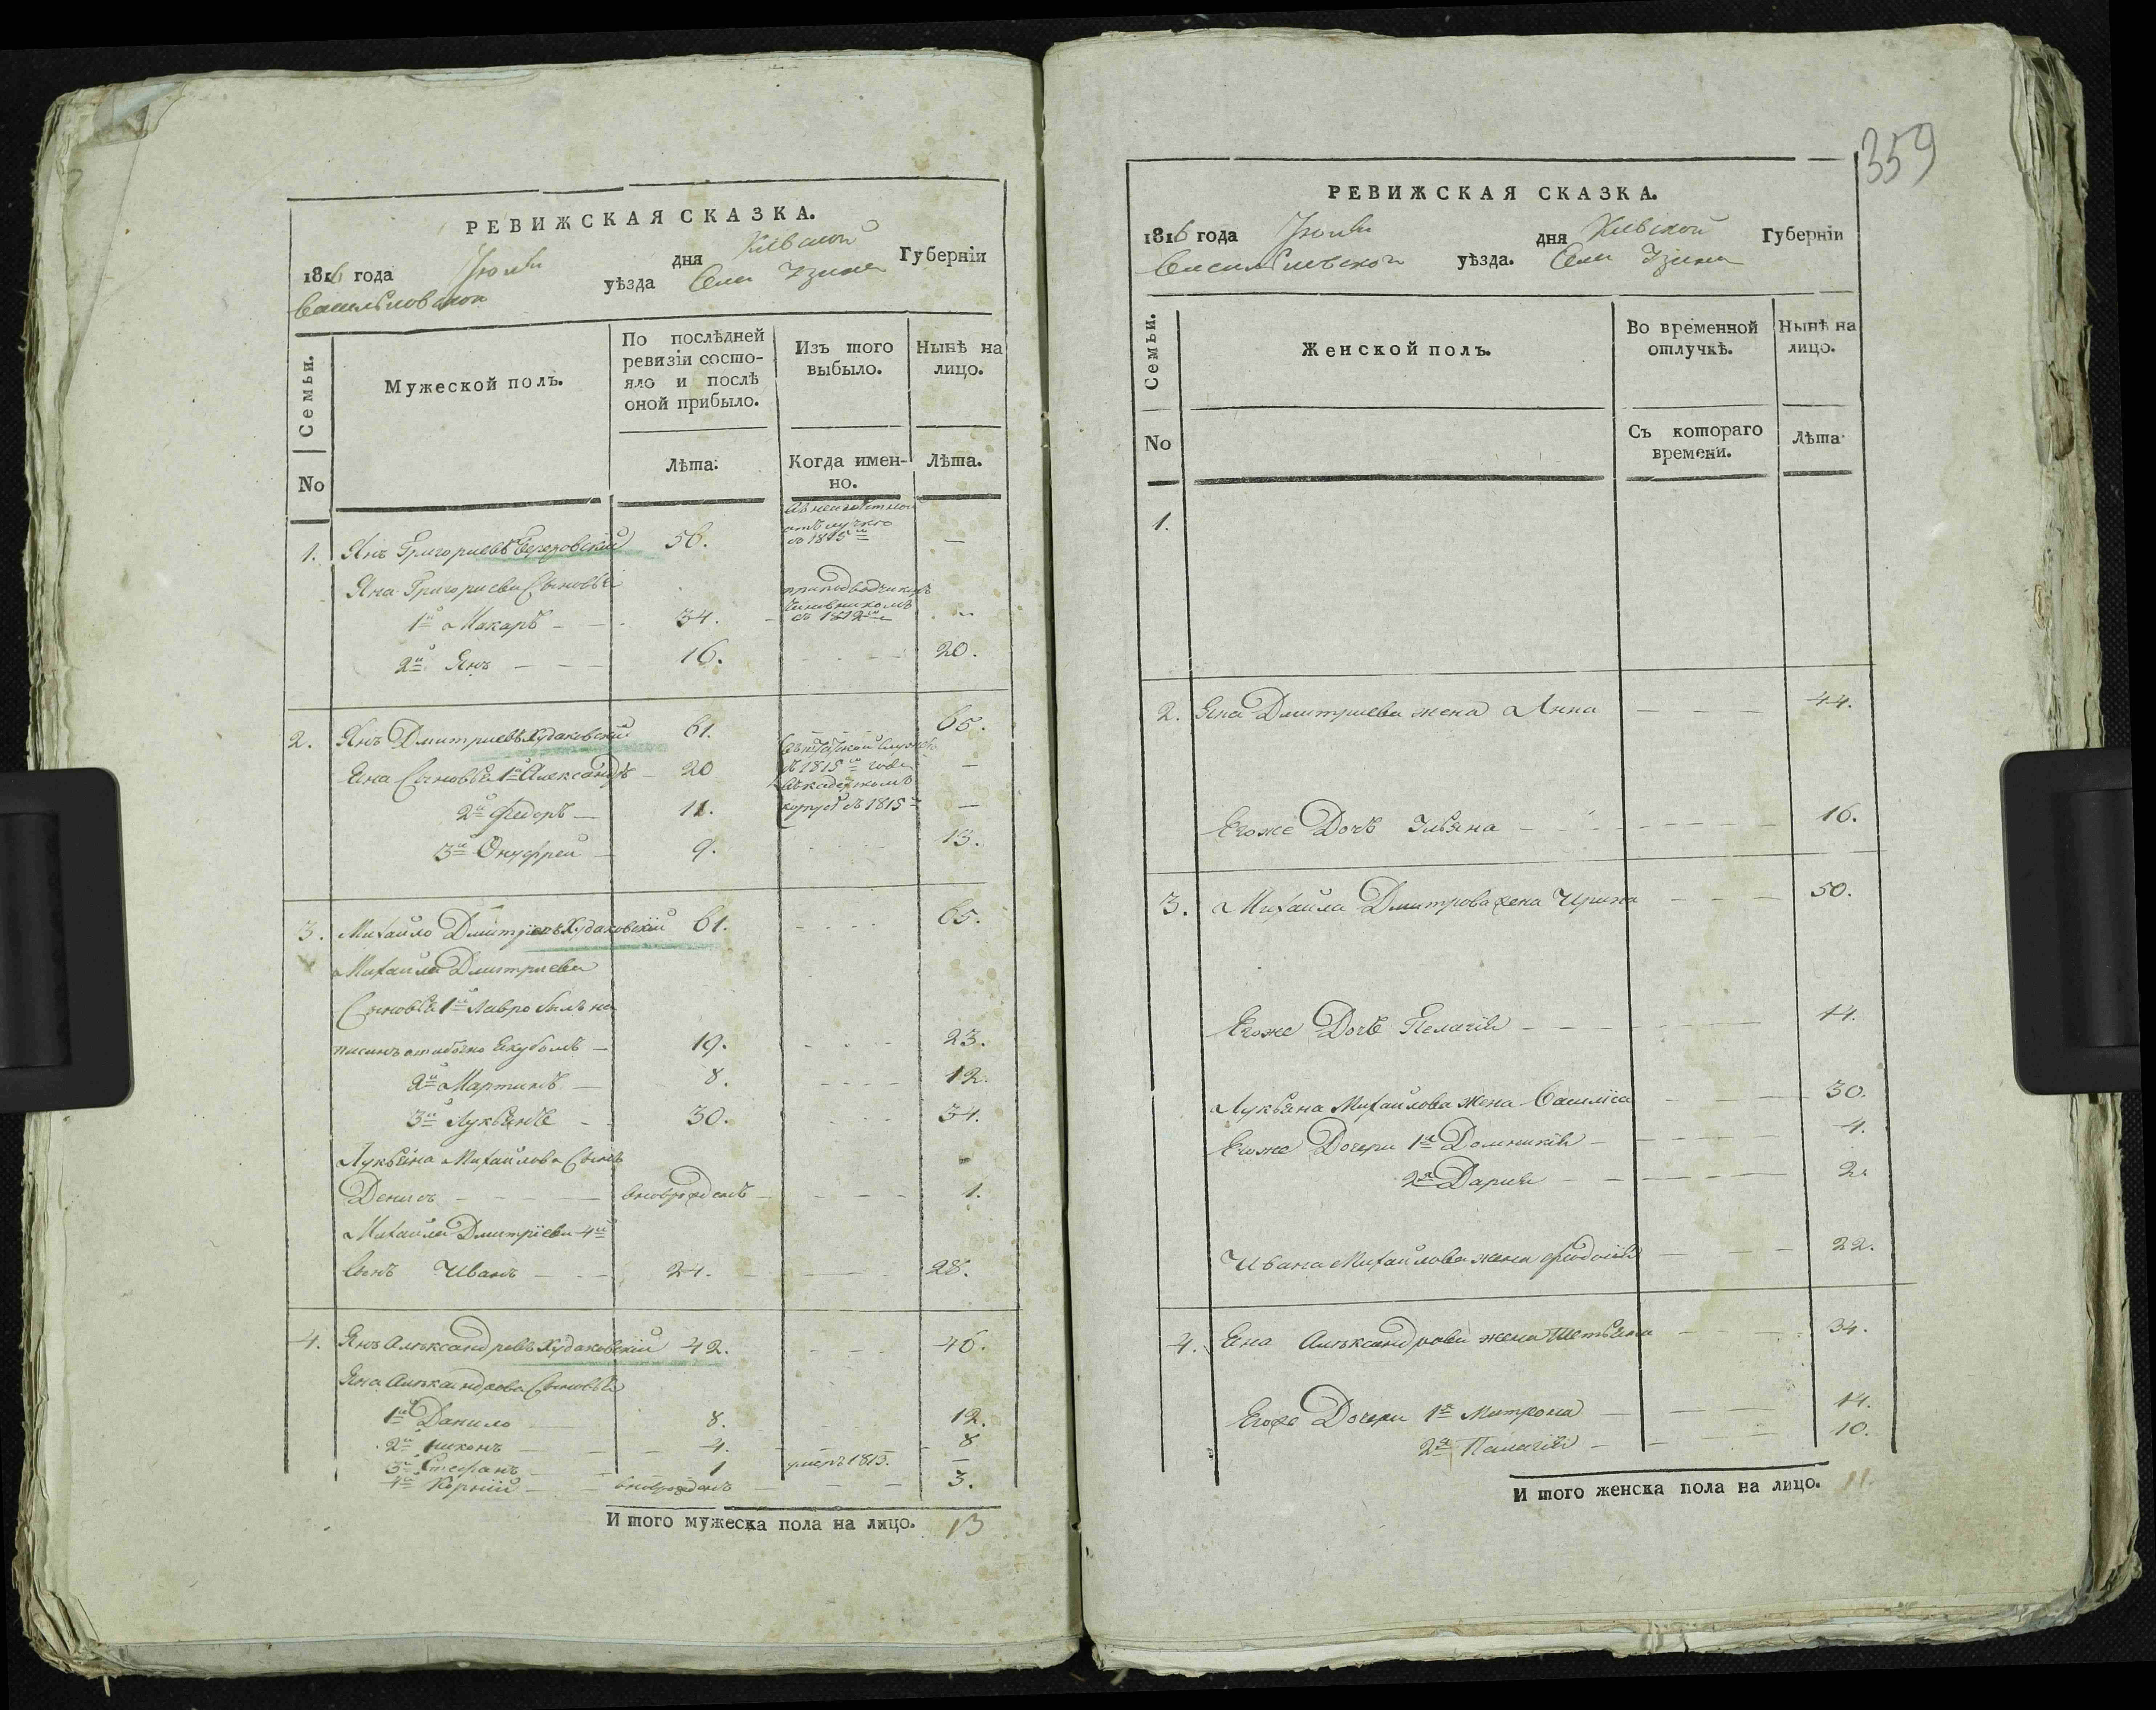 РЕВИЖСКАЯ СКАЗКА.
1816 года Июня дня Кіевской Губерніи
Васильковской уѣзда Села Узина
Семьи.
Мужеской полъ.
По послѣдней
ревязіи состо-
яло и послѣ
оной прибыло.
Изъ того
выбыло.
Нынѣ на
лицо.
No
Лѣта.
Когда имен-
но.
Лѣта.
1. Янъ Григориевъ 56. с 1815 —
Яна Григориева Сыновья
1й Макаръ — 34. съ 1812 —
2й Янъ — 16. 20.
2. Янъ Дмитриевъ Худаковский 61. 65.
Яна Сыновья 1й Александръ — 20 съ 1815 года —
2й Федоръ — 11. въ кадецкомъ корпусѣ съ 1815 —
3й Онуфрей — 9. 13.
3. Михайло Дмитріевъ Худаковскій 61. 65.
Михайла Дмитриева
Сыновья 1й Лавро былъ на
писанъ ошибочно Якубомъ — 19. 23.
2й Мартинъ — 8. 12.
3й Лукьянъ 30. 34.
Лукьяна Михайлова Сынъ
Денисъ вновьрожденъ 1.
Михайла Дмитріева 4й
Сынъ Иванъ 24. 28.
4. Янъ Александровъ Худаковскій 42. 46.
Яна Александрова Сыновья
1й Данило 8. 12.
2й Никонъ 4. 8
3й Стефанъ 1 умеръ 1813. —
4й Корній вновьрожденъ 3.
И того мужеска пола на лицо. 13
359
РЕВИЖСКАЯ СКАЗКА.
1816 года Июня дня Кіевской Губерніи
Васильковской уѣзда. Села Узина
Семьи.
Женской полъ.
Во временной
отлучкѣ.
Нынѣ на
лицо.
No
Съ котораго
времени.
Лѣта
1.
2. Яна Дмитриева жена Анна 44.
Егоже Дочь Ульяна 16.
3. Михайла Дмитрова жена Ирина 50.
Егоже Дочь Пелагія 14.
Лукьяна Михайлова жена Василиса 30.
Егоже Дочери 1я Домникія 4.
2я Дарія 2.
Ивана Михайлова жена Феодосія 22.
4. Яна Александрова жена Тетьяна 34.
Егоже Дочери 1я Матрона 14.
2я Палагія 10.
И того женска пола на лицо. 11.